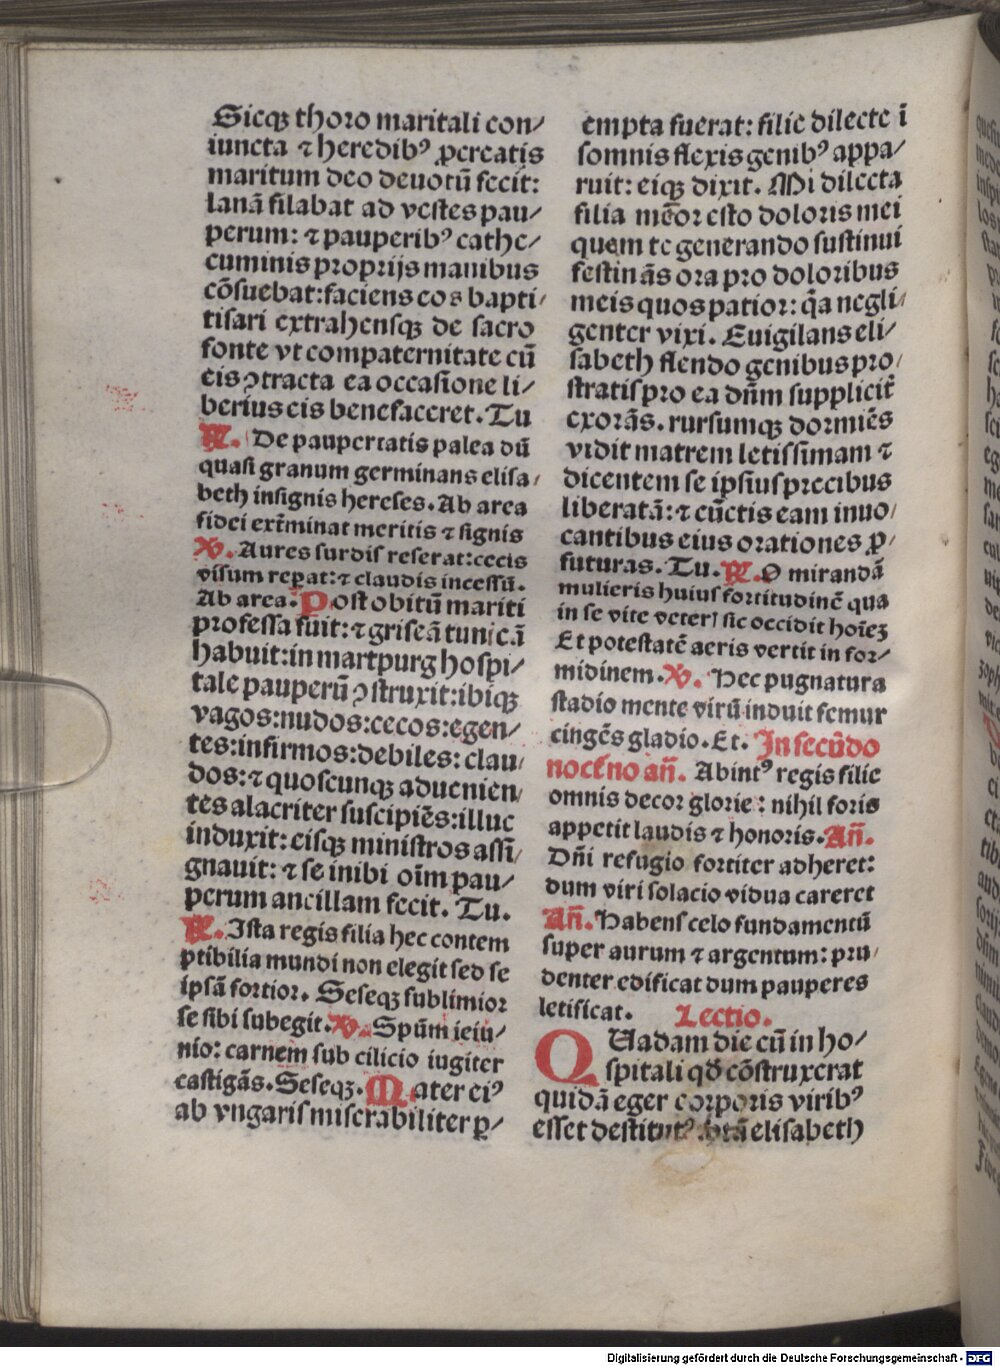 Sicqꝫ thoro maritali con/
iuncta ⁊ heredibꝰ ꝓcreatis
maritum deo deuotū fecit:
lanā filabat ad vestes pau/
perum: ⁊ pauperibꝰ cathe/
cuminis proprijs manibus
cōsuebat: faciens eos bapti/
tisari extrahensqꝫ de sacro
fonte vt compaternitate cū
eis ꝯtracta ea occasione li/
berius eis benefaceret. Tu
℟. De paupertatis palea dū
quasi granum germinans elisa/
beth insignis hereses. Ab area
fidei exťminat meritis ⁊ signis
℣. Aures surdis reserat: cecis
visum reꝑat: ⁊ claudis incessū.
Ab area. Post obitū mariti
professa fuit: ⁊ griseā tunicā
habuit: in martpurg hospi/
tale pauperū ꝯstruxit: ibiqꝫ
vagos: nudos: cecos: egen/
tes: infirmos: debiles: clau/
dos: ⁊ quoscunqꝫ aduenien/
tes alacriter suscipiēs: illuc
induxit: eisqꝫ ministros assi/
gnauit: ⁊ se inibi oīm pau/
perum ancillam fecit. Tu.
℟. Ista regis filia hec contem
ptibilia mundi non elegit sed se
ipsā fortior. Seseqꝫ sublimior
se sibi subegit. ℣. Spūm ieiu/
nio: carnem sub cilicio iugiter
castigās. Seseqꝫ. Mater eiꝰ
ab vngaris miserabiliter ꝑ/
empta fuerat: filie dilecte ī
somnis flexis genibꝰ appa/
ruit: eiqꝫ dixit. Mi dilecta
filia memor esto doloris mei
quem te generando sustinui
festināsora pro doloribus
meis quos patior: q̄a negli/
genter vixi. Euigilans eli/
sabeth flendo genibus pro/
stratis pro ea dūm suppliciť
exorās. rursumqꝫ dormiēs
vidit matrem letissimam ⁊
dicentem se ipsius precibus
liberatā: ⁊ cūctis eam inuo/
cantibus eius orationes ꝓ/
futuras. Tu. ℟. O mirandā
mulieris huius fortitudinē qua
in se vite veteris sic occidit hoīeꝫ
Et potestatē aeris vertit in for/
midinem. ℣. Hec pugnatura
stadio mente virū induit femur
cingēs gladio. Et. In secūdo
nocťno añ. Abintꝰ regis filie
omnis decor glorie: nihil foris
appetit laudis ⁊ honoris. Añ.
Dñi refugio fortiter adheret:
dum viri solacio vidua careret
Añ. Habens celo fundamentū
super aurum ⁊ argentum: pru/
denter edificat dum pauperes
letificat. Lectio.
QUadam die cū in ho/
spitali qd̄ cōstruxerat
quidā eger corporis viribꝰ
esset destitutꝰ. btā elisabeth
Digitalisierung gefördert durch die Deutsche Forschungsgemeinschaft - DFG